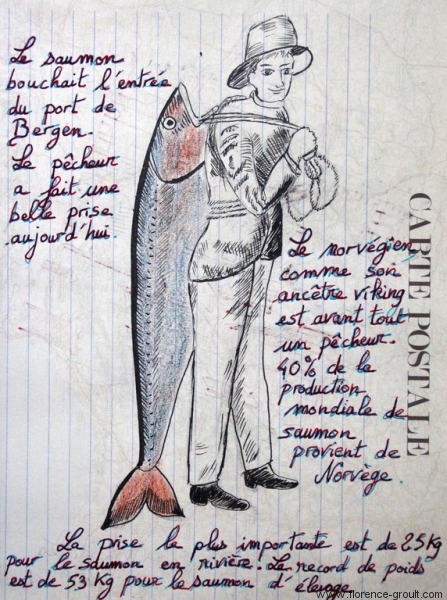 Le saumon
bouchait l'entrée
du port de
Bergen.
Le pêcheur
a fait une
belle prise
aujourd'hui.
CARTE POSTALE
Le norvégien
comme son
ancêtre viking
est avant tout
un pêcheur.
40% de la
production
mondiale de
saumon
provient de
Norvège.
La prise la plus importante est de 25 kg
pour le saumon en rivière. Le record de poids
est de 53 kg pour le saumon d'élevage
www.florence-groult.com